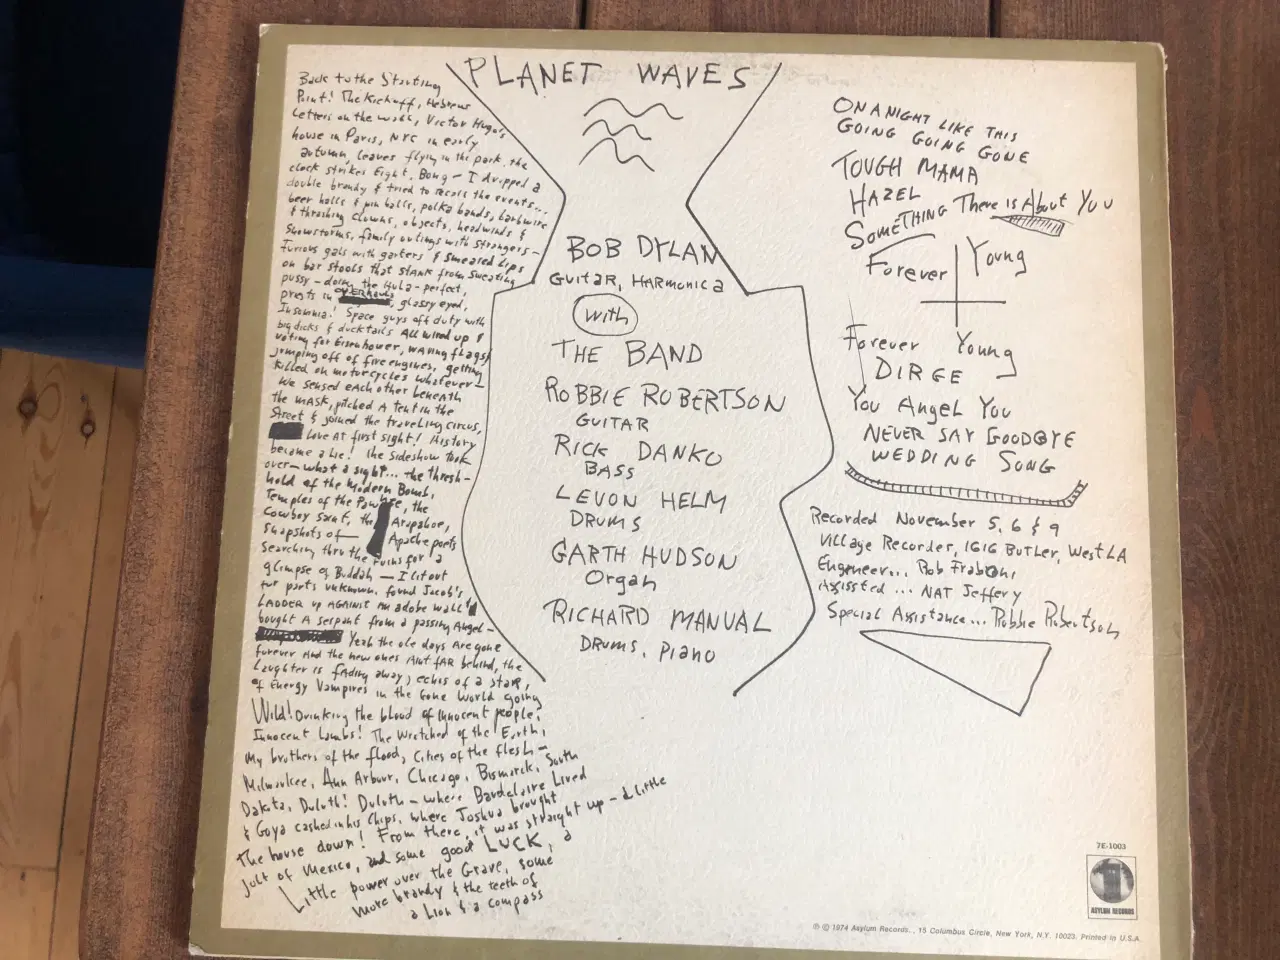 Back to the Starting
Point! The Kickoff, Hebrew
Letters on the wall, Victor Hugo's
house in Paris, NYC in early
autumn, leaves flying in the park, the
clock strikes Eight. Bong - I dropped a
double brandy & tried to recall the events...
beer halls & pin balls, polka bands, barbwire
& thrashing clowns, objects, headwinds &
Snowstorms, family outings with strangers -
Furious gals with garters & smeared Lips
on bar stools that stank from sweating
pussy - doing the Hula - perfect,
priests in overhauls, glassy eyed,
Insomnia! Space guys off duty with
big dicks & ducktails All wired up &
voting for Eisenhower, waving flags
jumping off of fire engines, getting
killed on motorcycles whatever -
We sensed each other beneath
the mask, pitched a tent in the
Street & joined the traveling circus,
Love at first sight! History
became a Lie! the sideshow took
over - what a sight... the thresh-
hold of the Modern Bomb,
Temples of the Pawnee, the
Cowboy saint, the Arapahoe,
snapshots of - Apache poets
searching thru the ruins for a
glimpse of Buddah - I lit out
for parts unknown, found Jacob's
LADDER up AGAINST an adobe wall &
bought A serpent from a passing Angel -
Yeah the ole days Are gone
forever And the new ones Aint fAR behind, the
Laughter is fading away, echos of a star,
of Energy Vampires in the Gone World going
Wild! Drinking the blood of innocent people,
Innocent Lambs! The Wretched of the Earth,
My brothers of the flood, Cities of the flesh -
Milwaukee, Ann Arbour, Chicago, Bismarck, South
Dakota, Duluth! Duluth - where Baudelaire Lived
& Goya cashed in his Chips, where Joshua brought
the house down! From there, it was straight up - a little
jolt of Mexico, and some good LUCK, a
Little power over the Grave, some
more brandy & the teeth of
a Lion & a compass
PLANET WAVES
BOB DYLAN
GUITAR, HARMONICA
with
THE BAND
ROBBIE ROBERTSON
GUITAR
RICK DANKO
BASS
LEVON HELM
DRUMS
GARTH HUDSON
Organ
RICHARD MANUAL
DRUMS, PIANO
ON A NIGHT LIKE THIS
GOING GOING GONE
TOUGH MAMA
HAZEL
SOMETHING There Is About You
Forever Young
Forever Young
DIRGE
You Angel You
NEVER SAY GOODBYE
WEDDING SONG
Recorded November 5, 6 & 9
Village Recorder, 1616 BUTLER, West LA
Engineer... Rob Fraboni
Assissted... NAT Jeffery
Special Assistance... Robbie Robertson
7E-1003
ASYLUM RECORDS
℗ © 1974 Asylum Records., 15 Columbus Circle, New York, N.Y. 10023. Printed in U.S.A.